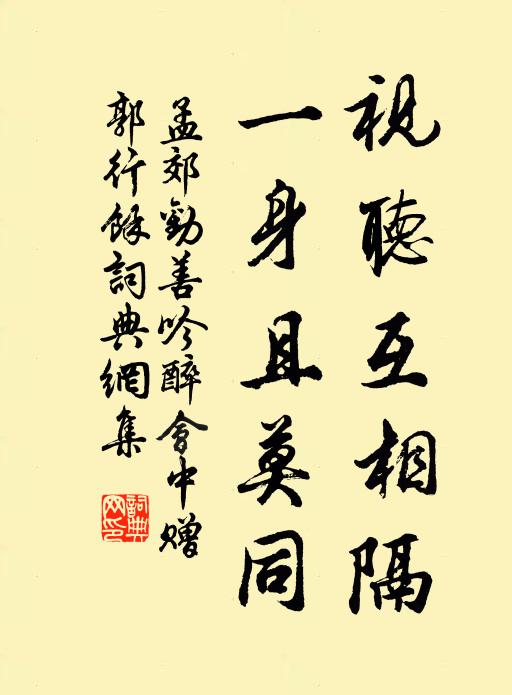 視聽互相隔
一身且莫同
孟郊勸善吟醉會中赠
郭行餘詞典網集
詞典
网印